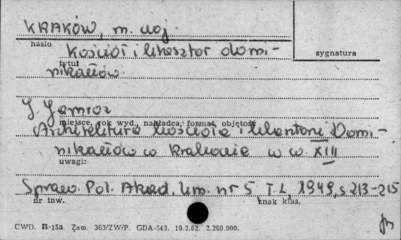 KRAKÓW, m. woj.
hasło
Kościół i klasztor domi-
sygnatura
tytuł
nikanów.
J. Jamroz
miejsce, rok wyd., nakładca, format, objętość
Architektura kościoła i klasztoru Domi-
nikanów w Krakowie w w. XIII
uwagi:
Spraw. Pol. Akad. Um. nr 5 T. L, 1949, s 213-215
nr inw.
znak klas.
CWD. B-15a. Zam. 363/ZW/P. GDA-543. 19.2.62. 2.200.000.